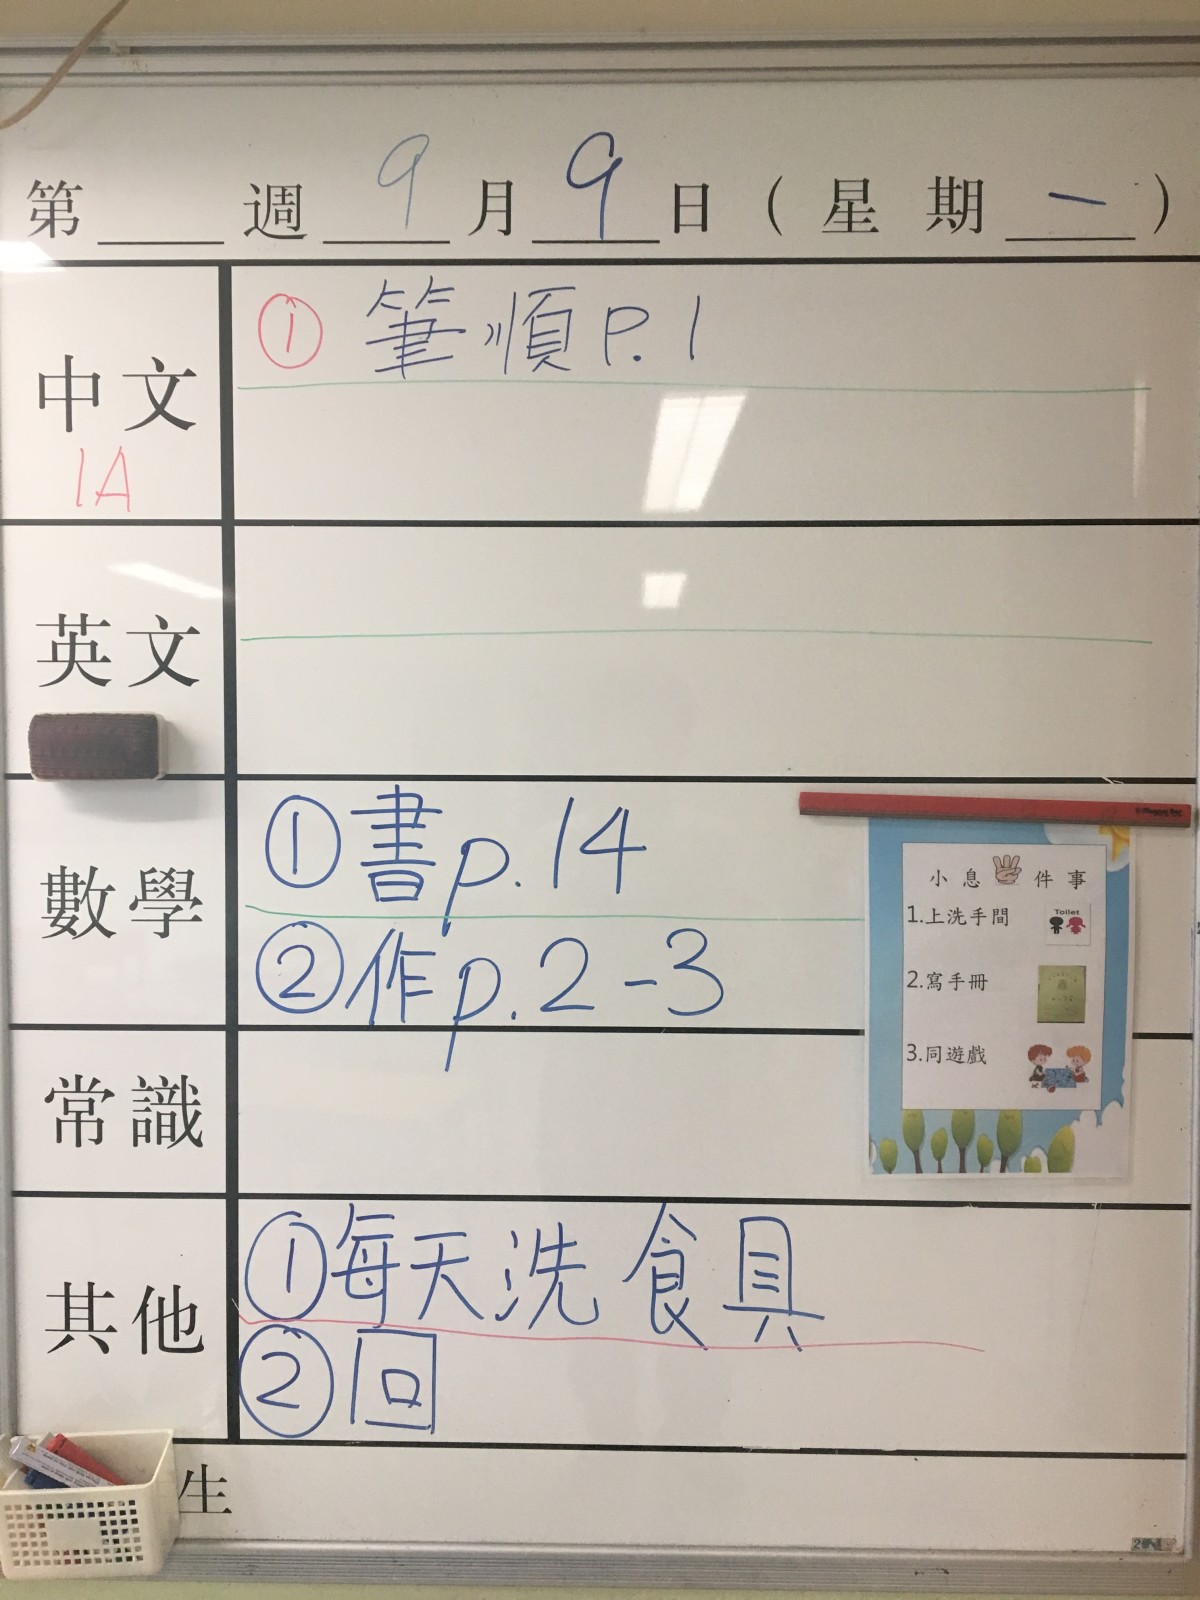 第 週 9 月 9 日 ( 星 期 一 )
中文
1A
① 筆順 P. 1
英文
數學
① 書 p. 14
② 作 p. 2-3
小 息 件 事
1.上洗手間
Toilet
2.寫手冊
3.同遊戲
常識
其他
① 每天洗食具
② 回
生